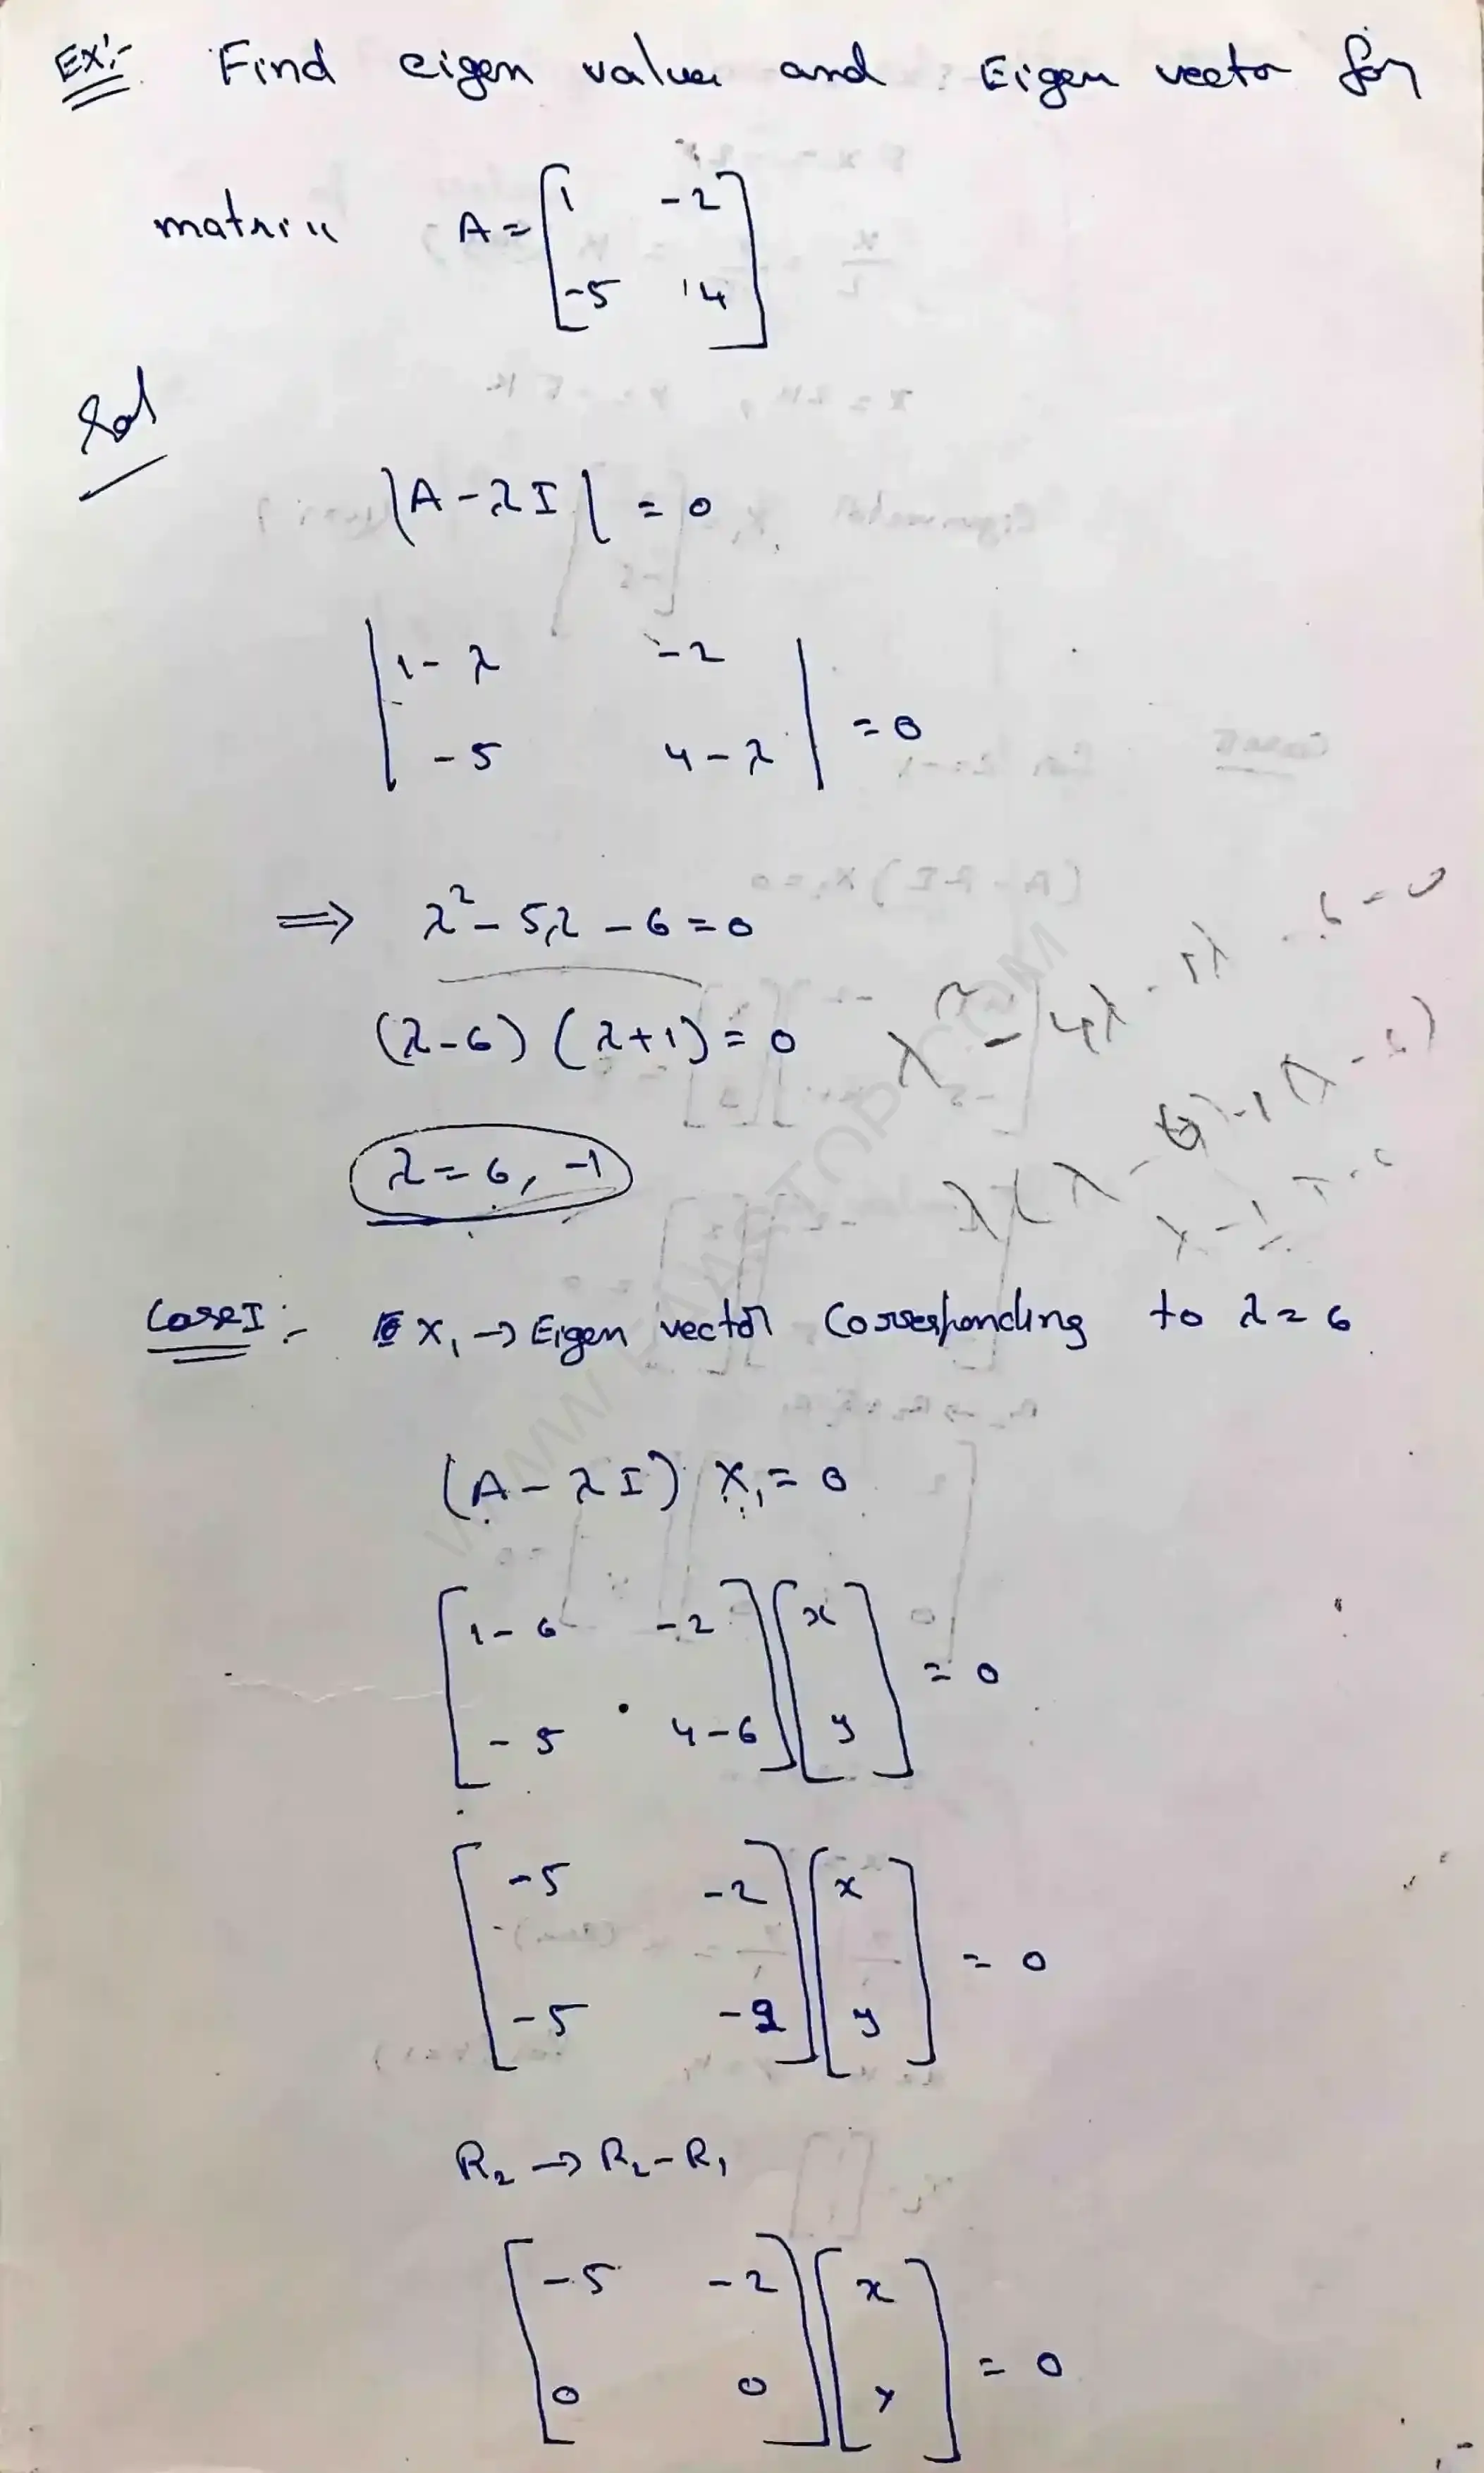 Ex:- Find eigen value and Eigen vector for
matrix A = [1 -2
-5 4]
Sol
|A - λI| = 0
|1-λ -2
-5 4-λ| = 0
⇒ λ² - 5λ - 6 = 0
(λ-6) (λ+1) = 0
λ = 6, -1
Case I :- X₁ → Eigen vector Corresponding to λ = 6
(A - λI) X₁ = 0
[1-6 -2
-5 4-6] [x
y] = 0
[-5 -2
-5 -2] [x
y] = 0
R₂ → R₂ - R₁
[-5 -2
0 0] [x
y] = 0